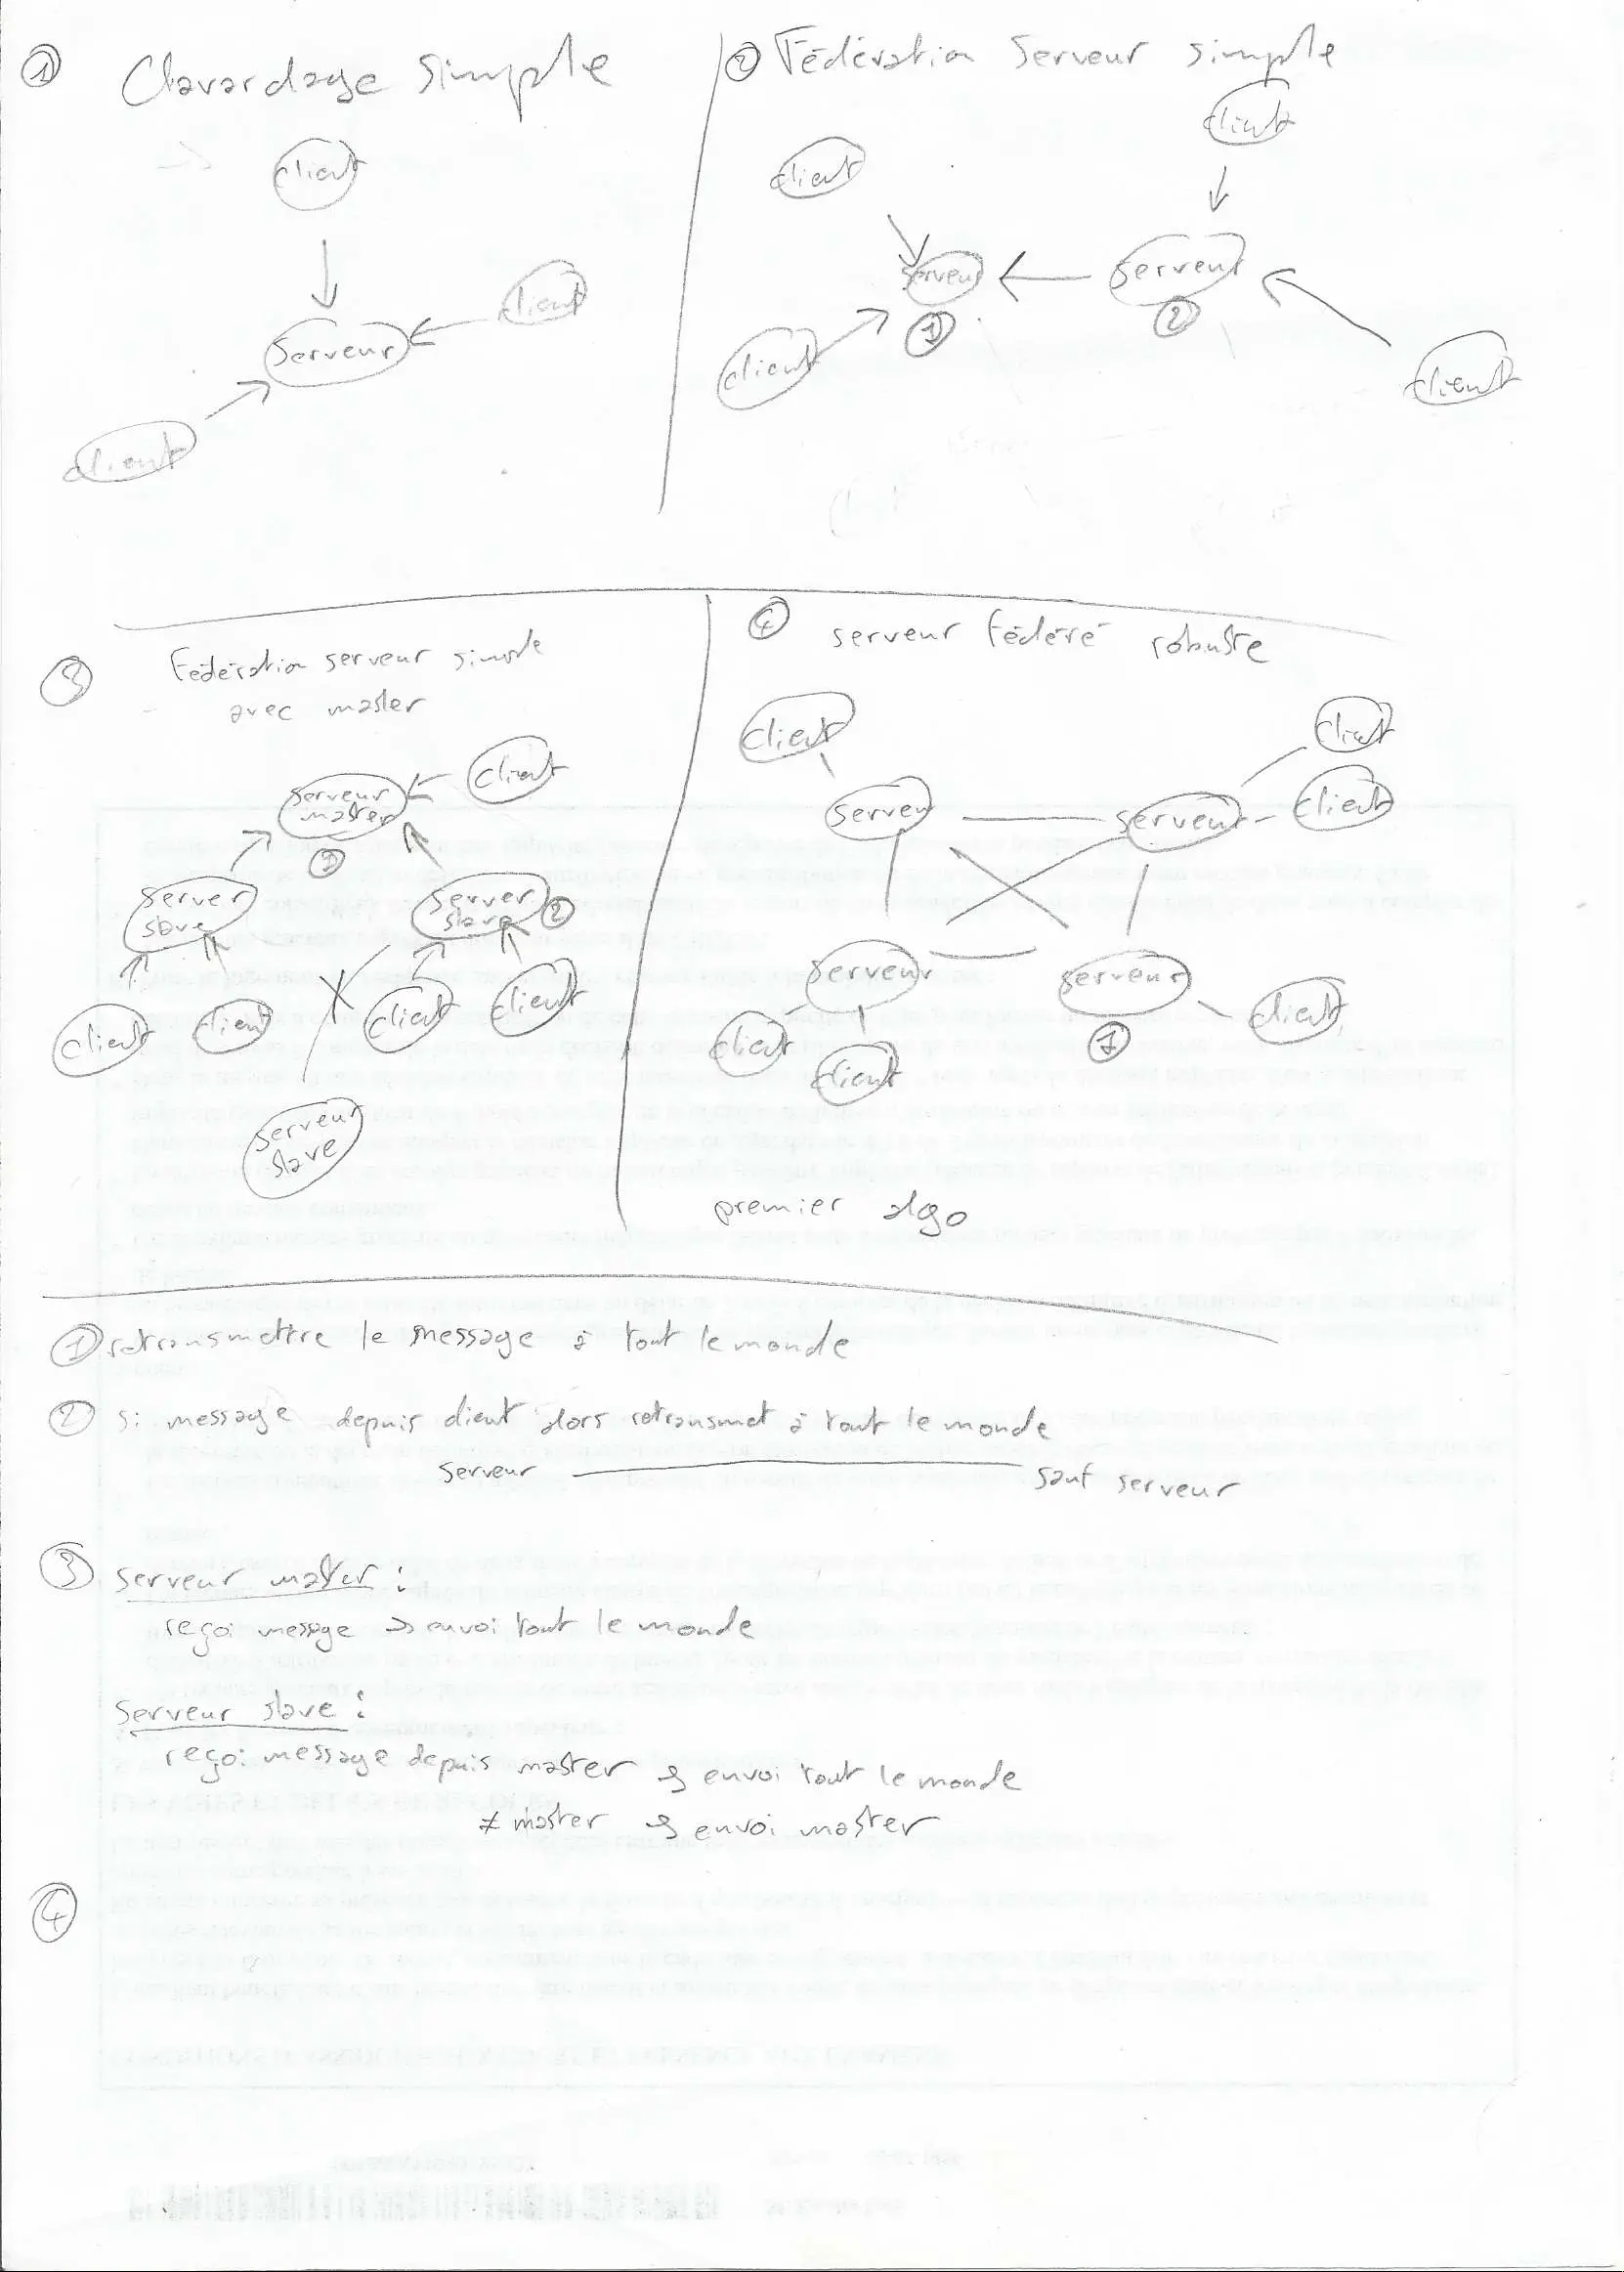 ① Clavardage simple
client
client
serveur
client
② Fédération serveur simple
client
client
serveur
serveur
①
②
client
client
③ Fédération serveur simple
avec master
client
serveur
master
①
server
slave
server
slave ②
client
client
client
client
serveur
slave
④ serveur fédéré robuste
client
client
client
serveur
serveur
serveur
serveur
①
client
client
client
premier algo
① retransmettre le message à tout le monde
② si message depuis client alors retransmet à tout le monde
serveur ———— sauf serveur
③ serveur master :
reçoi message → envoi tout le monde
serveur slave :
reçoi message depuis master → envoi tout le monde
≠ master → envoi master
④